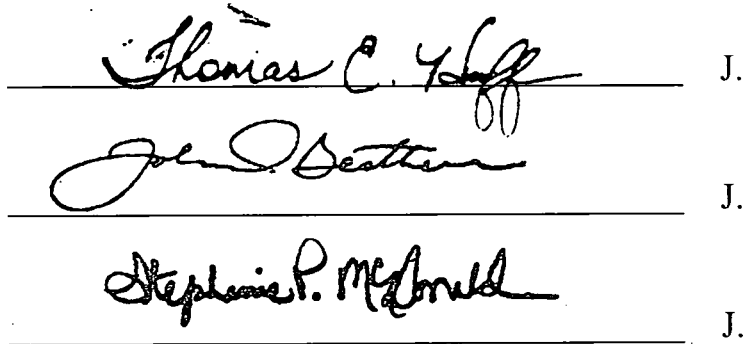 Thomas C. Huff J.
John J. J.
Stephanie P. McDonald J.